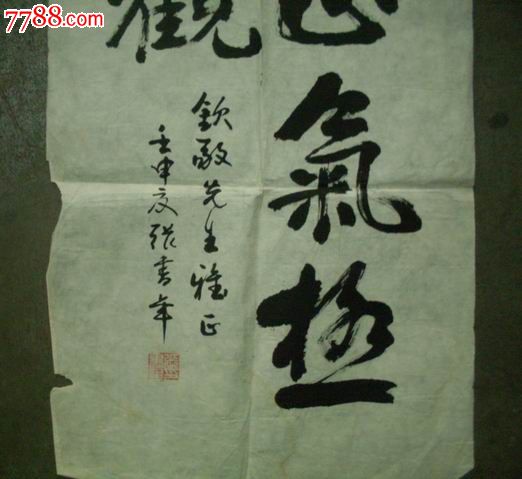 7788.com
氣極
觀
欽敬先生雅正
壬申夏張書年